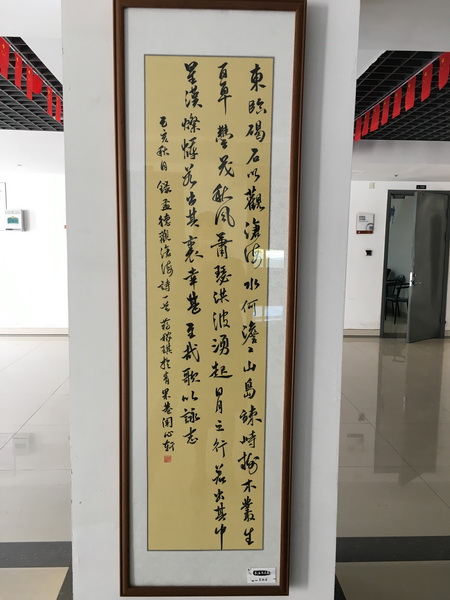 東臨碣石以觀滄海水何澹〻山島竦峙樹木叢生
百草豐茂秋風蕭瑟洪波湧起日月之行若出其中
星漢燦爛若出其裏幸甚至哉歌以詠志
己亥秋月錄孟德觀滄海詩一首 於青果巷閑心軒